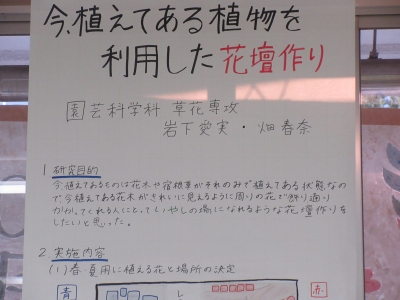 今、植えてある植物を
利用した花壇作り
園芸科学科 草花専攻
岩下愛実・畑春奈
1 研究目的
今植えてあるものは花木や宿根草がそれのみで植えてある状態なの
で、今植えてある花木がきれいに見えるように周りの花で飾り通り
かかってくれる人にとっていやしの場になれるような花壇作りを
したいと思った。
2. 実施内容
(1) 春・夏用に植える花と場所の決定
青
赤